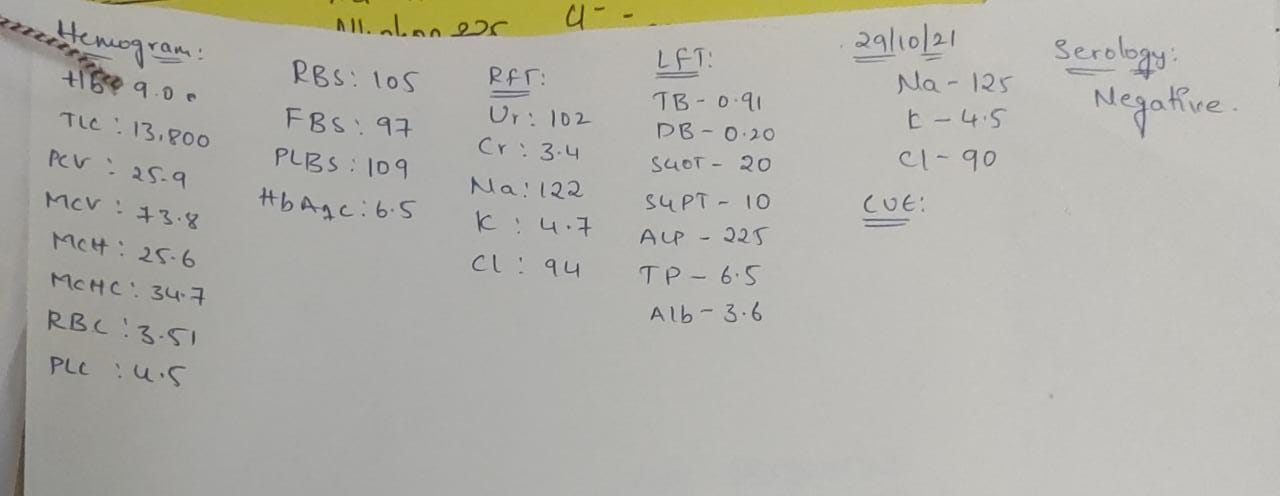 Hemogram:
Hb 9.0
TLC : 13,800
PCV : 25.9
MCV : 73.8
MCH : 25.6
MCHC : 34.7
RBC : 3.51
PLC : 4.5
RBS : 105
FBS : 97
PLBS : 109
HbA1c : 6.5
RFT:
Ur : 102
Cr : 3.4
Na : 122
K : 4.7
Cl : 94
LFT:
TB - 0.91
DB - 0.20
SGOT - 20
SGPT - 10
ALP - 225
TP - 6.5
Alb - 3.6
29/10/21
Na - 125
K - 4.5
Cl - 90
CUE:
Serology:
Negative.